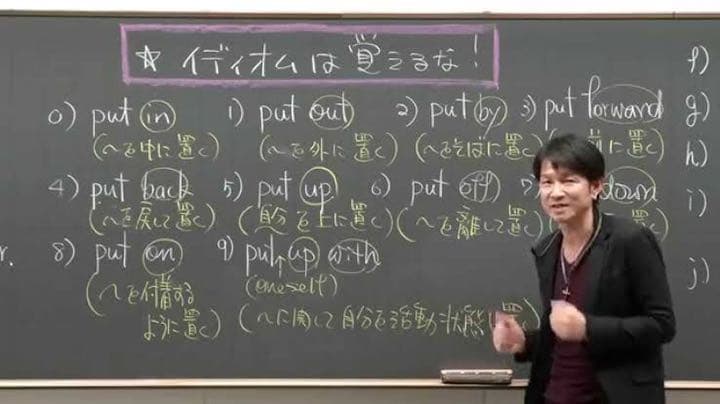 ☆ イディオムは覚えるな!
0) put in 1) put out 2) put by 3) put forward f)
(〜を中に置く) (〜を外に置く) (〜をそばに置く) 前に置く) g)
h)
4) put back 5) put up 6) put off down i)
(〜を戻して置く) (自分を上に置く) (〜を離して置く) 置く)
8) put on 9) put up with
(〜を付着する (oneself) j)
ように置く) (〜に関して自分を活動状態に置く)